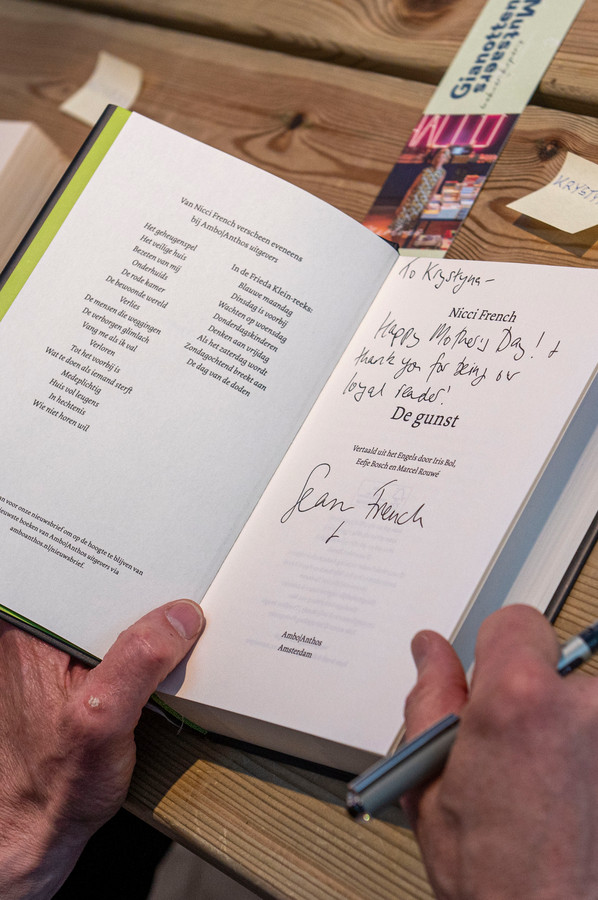 Gianotten
Mutsaers
Van Nicci French verscheen eveneens
bij Ambo|Anthos uitgevers
Het geheugenspel
Het veilige huis
Bezeten van mij
Onderhuids
De rode kamer
De bewoonde wereld
Verlies
De mensen die weggingen
De verborgen glimlach
Vang me als ik val
Verloren
Tot het voorbij is
Wat te doen als iemand sterft
Medeplichtig
Huis vol leugens
In hechtenis
Wie niet horen wil
In de Frieda Klein-reeks:
Blauwe maandag
Dinsdag is voorbij
Wachten op woensdag
Donderdagskinderen
Denken aan vrijdag
Als het zaterdag wordt
Zondagochtend breekt aan
De dag van de doden
an voor onze nieuwsbrief om op de hoogte te blijven van
ieuwste boeken van Ambo|Anthos uitgevers via
amboanthos.nl/nieuwsbrief.
To Krystyna –
Nicci French
Happy Mother's Day! +
thank you for being our
loyal reader!
De gunst
Vertaald uit het Engels door Iris Bol,
Eefje Bosch en Marcel Rouwé
Sean French
+
Ambo|Anthos
Amsterdam
KRYSTY